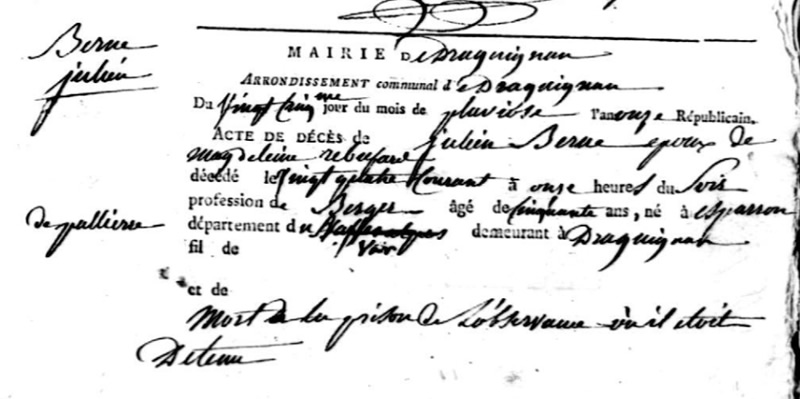 Berne
julien
MAIRIE De Draguignan
ARRONDISSEMENT communal de Draguignan
Du vingt cinq me jour du mois de pluviose l'an onze Républicain.
ACTE DE DÉCÈS de julien Berne epoux de
magdeleine rebufard
décédé le vingt quatre Courant à onze heures du Soir
profession de Berger âgé de Cinquante ans, né à esparron
de pallierse
département du Var demeurant à Draguignan
fil de
et de
Mort de la prison de L'observance où il etoit
Detenu